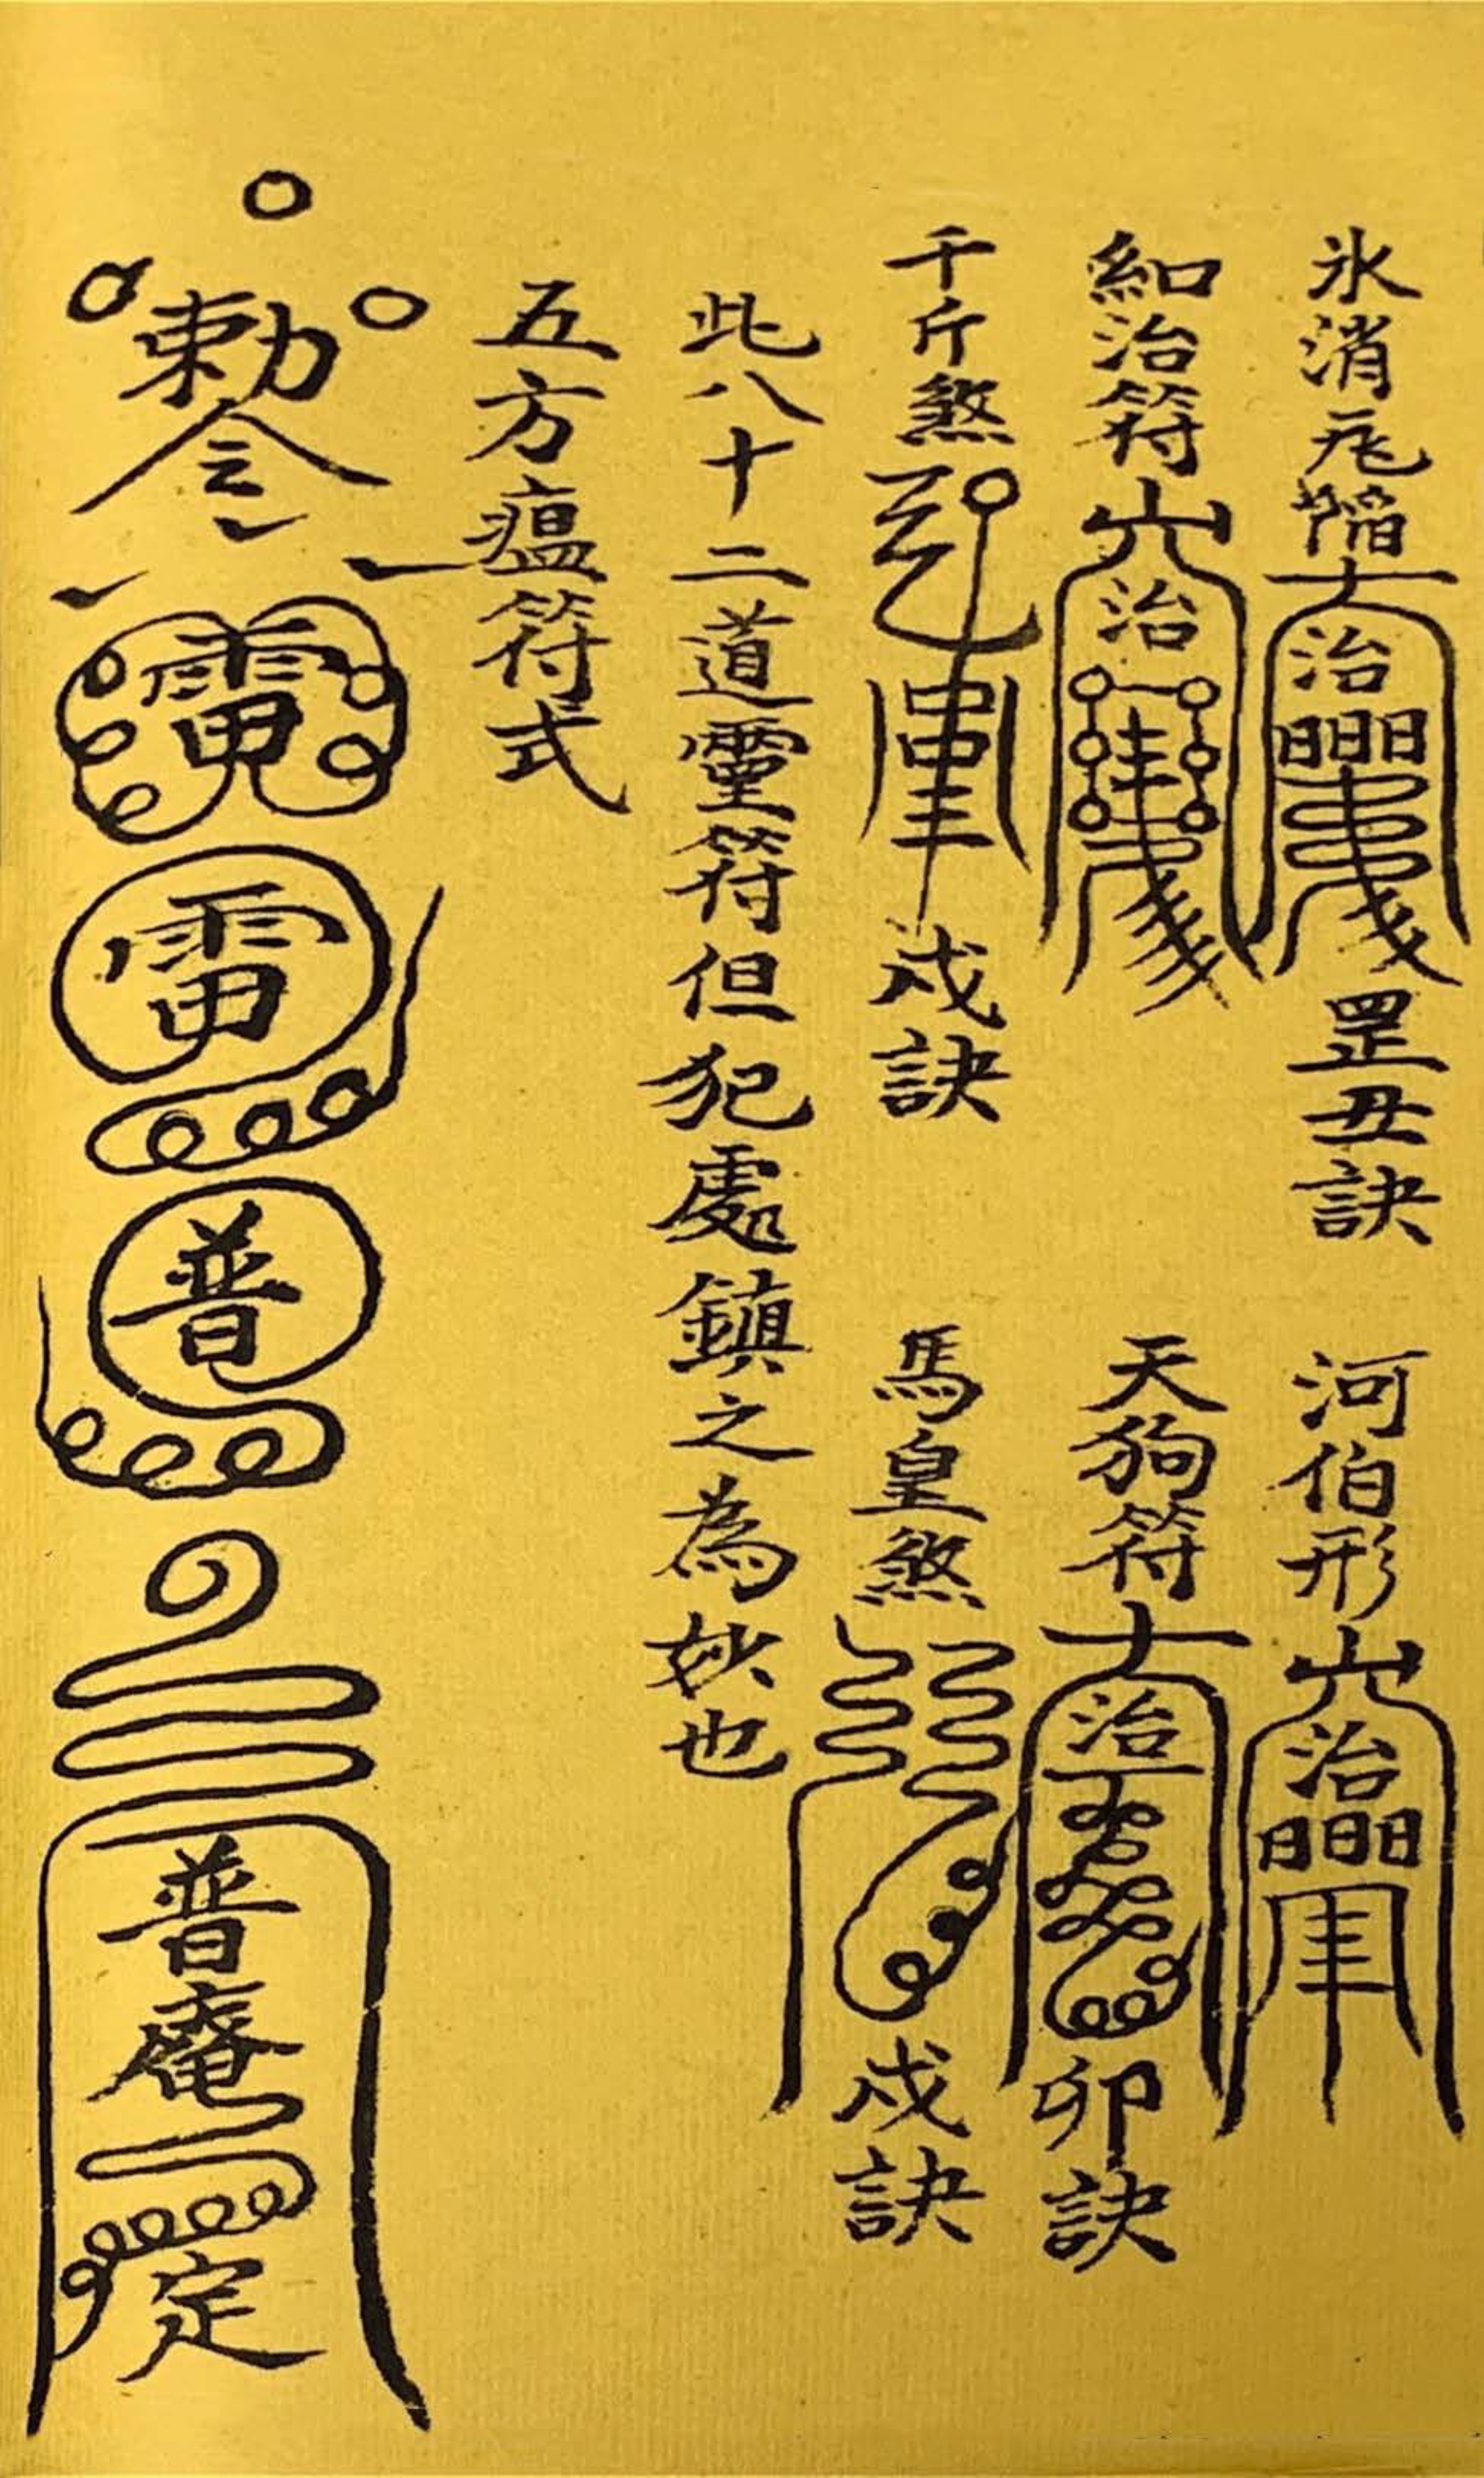 氷消瓦陷 治 日日日 罡丑訣
河伯形 治 日日日
和治符 治
天狗符 治 卯訣
千斤煞 戌訣
馬皇煞 戌訣
此八十二道靈符但犯處鎮之為妙也
五方瘟符式
勅令 雷 雷 普 普庵 定